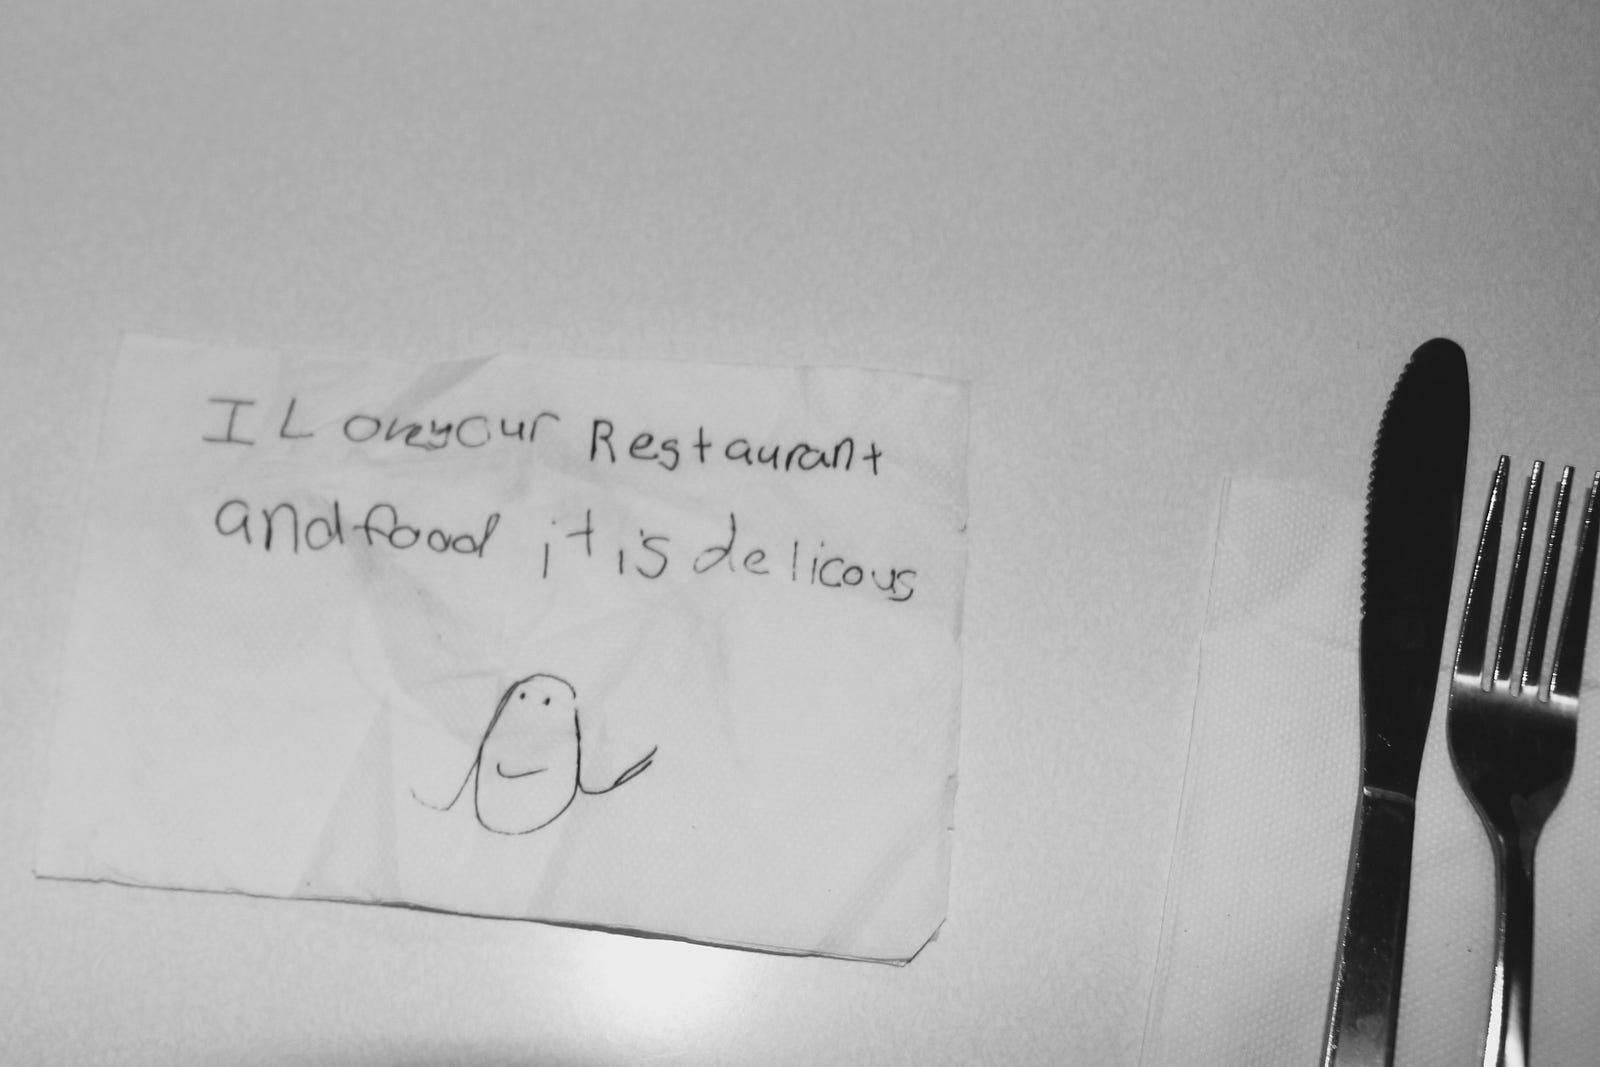 I Loveyour Restaurant
andfood it is delicous